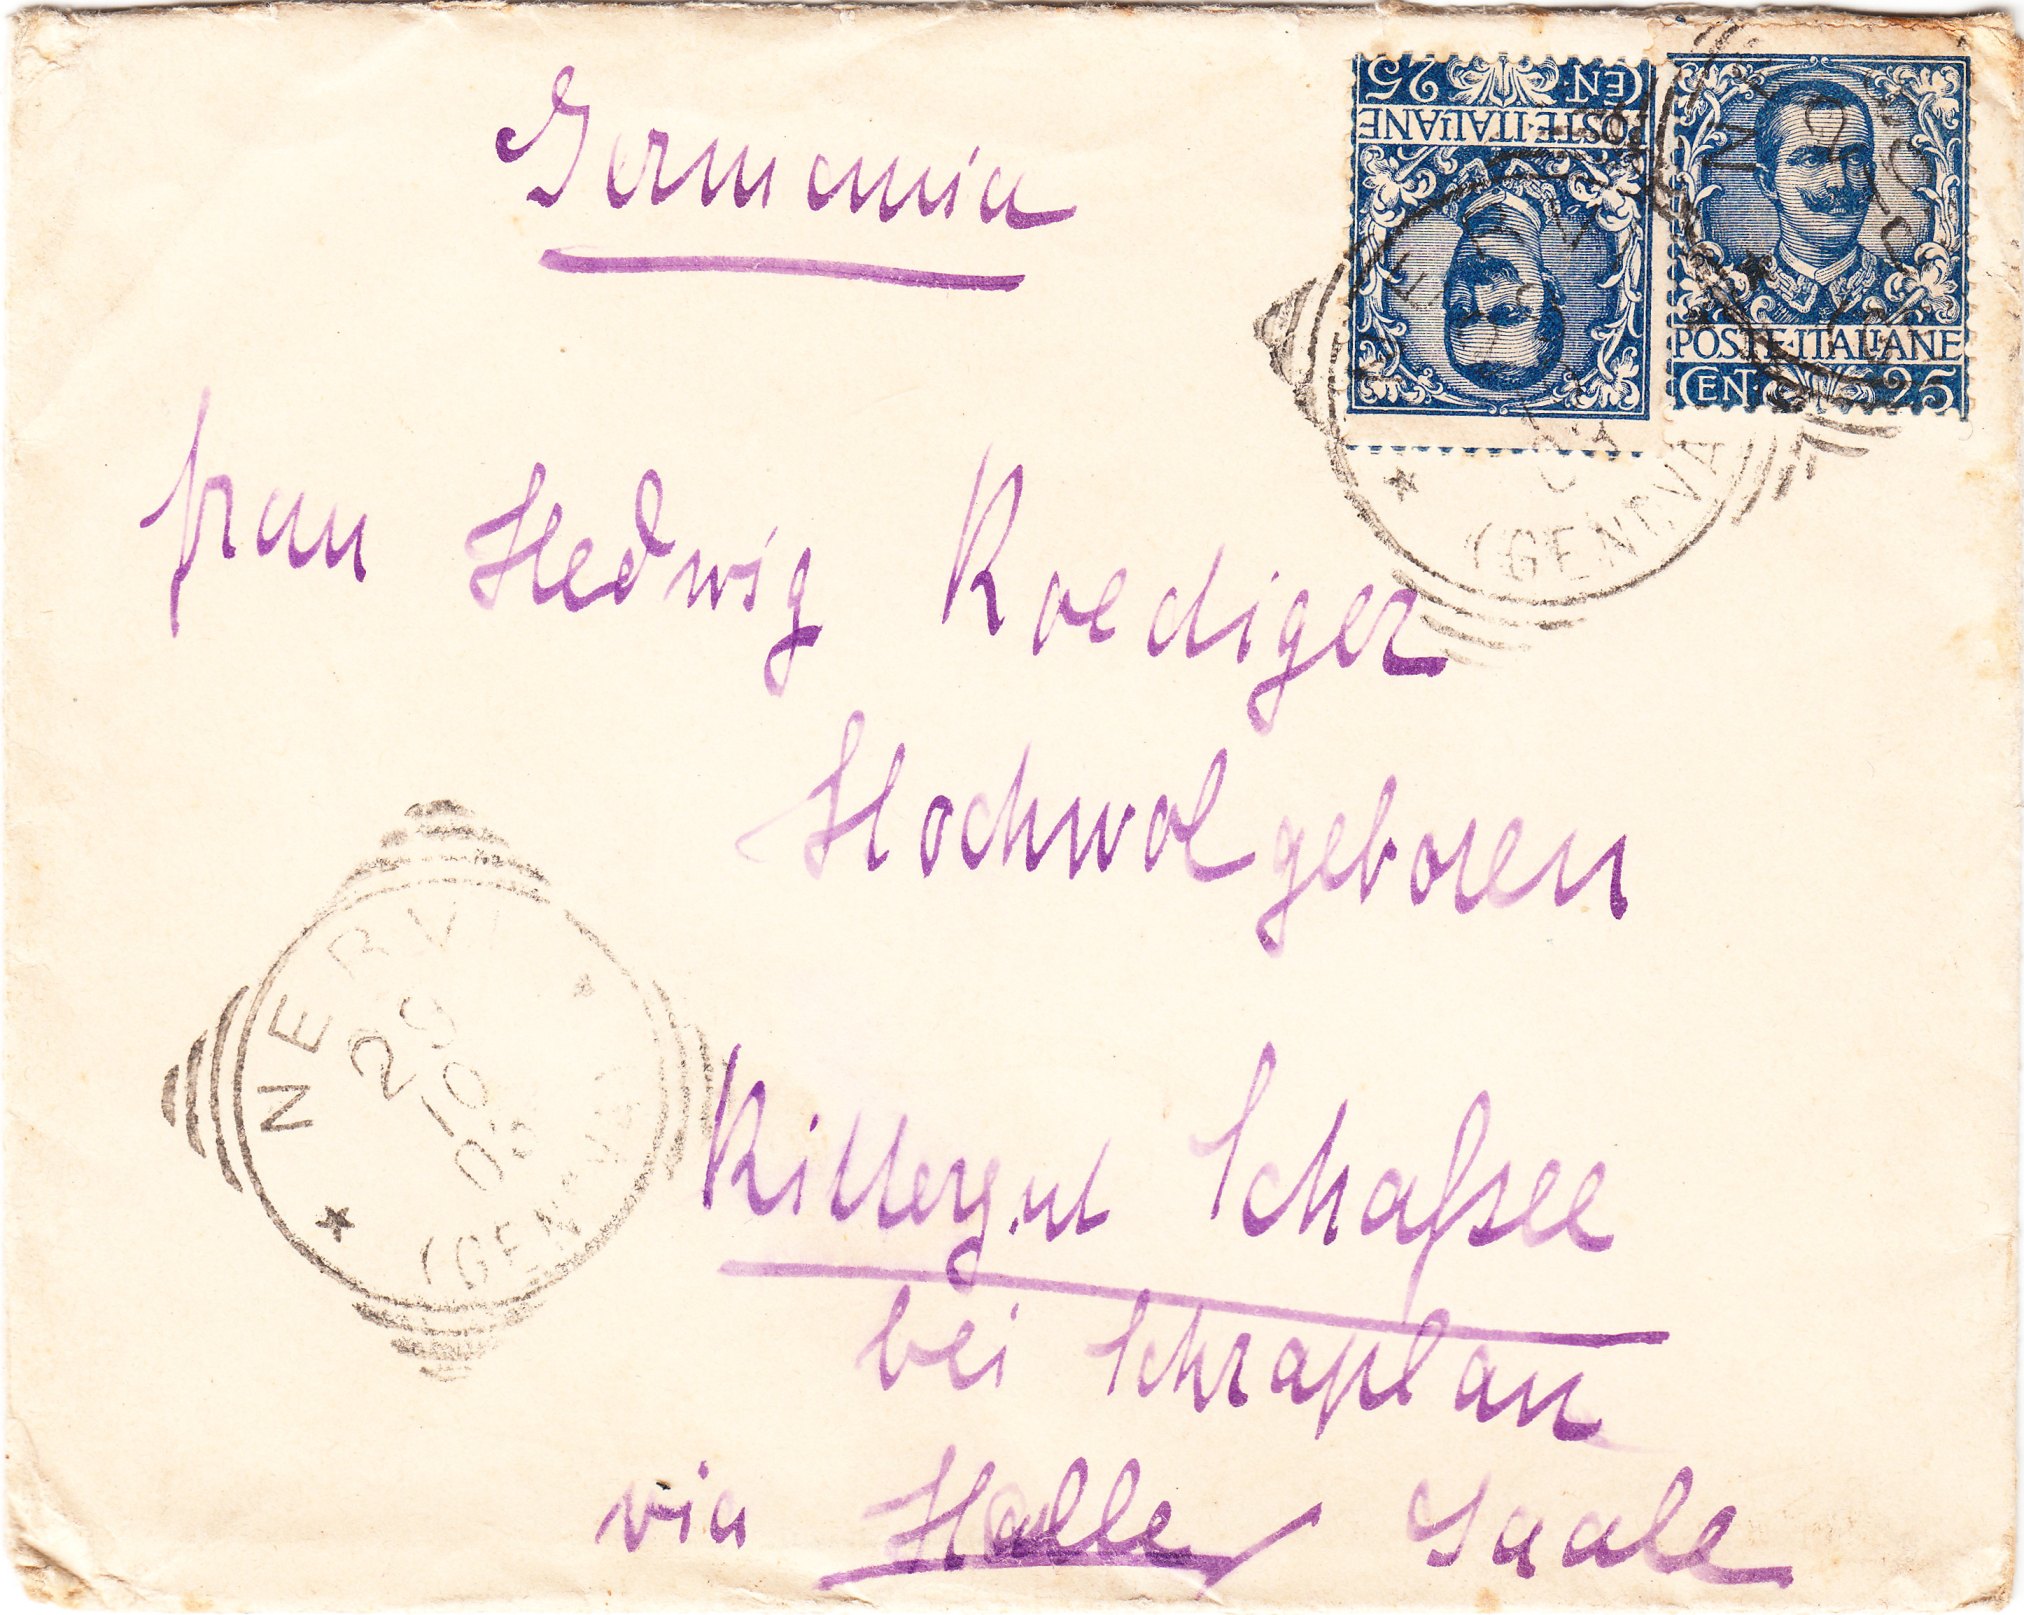 Germania
POSTE·ITALIANE
CEN. 25
POSTE·ITALIANE
CEN. 25
(GENOVA
Frau Hedwig Roediger
Hochwolgeboren
NERVI
10
(GENOVA)
Rittergut Schafsee
bei Schraplau
via Halle / Saale